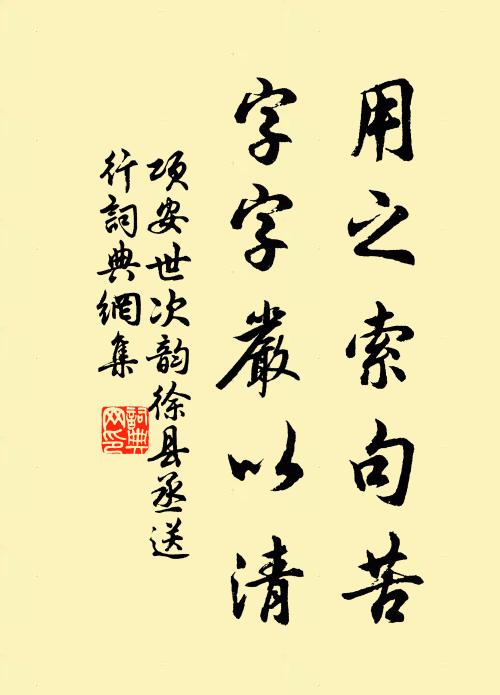 用之索句苦
字字嚴以清
项安世次韵徐县丞送
行詞典網集
詞典网印